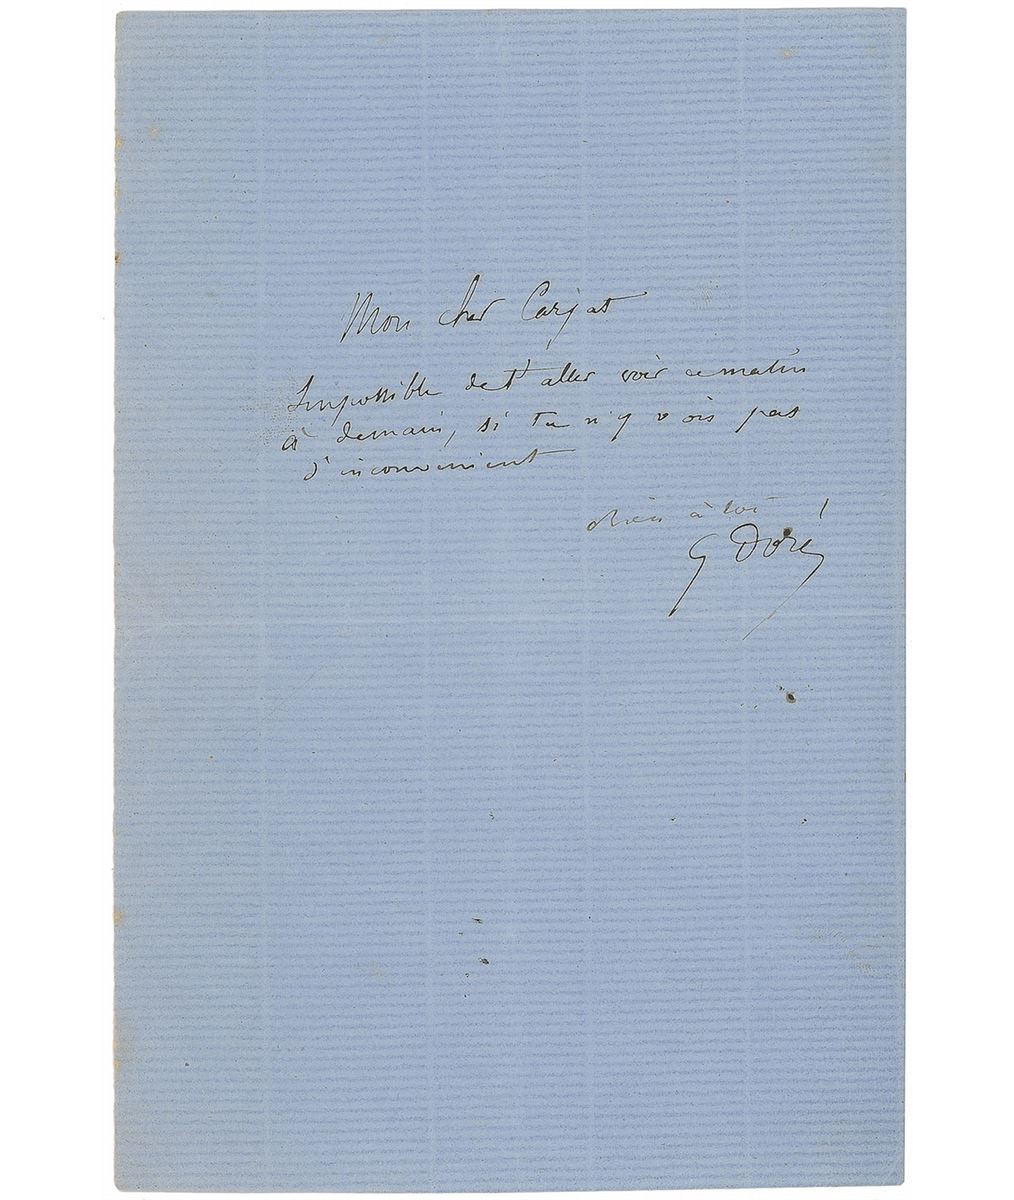 Mon cher Carjat
Impossible de t'aller voir ce matin
à demain, si tu n'y vois pas
d'inconvenient
à toi
G Doré